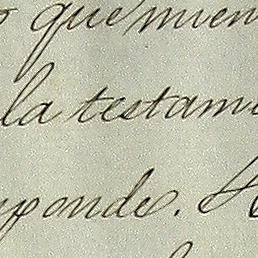 que mien
la testam
ponde.